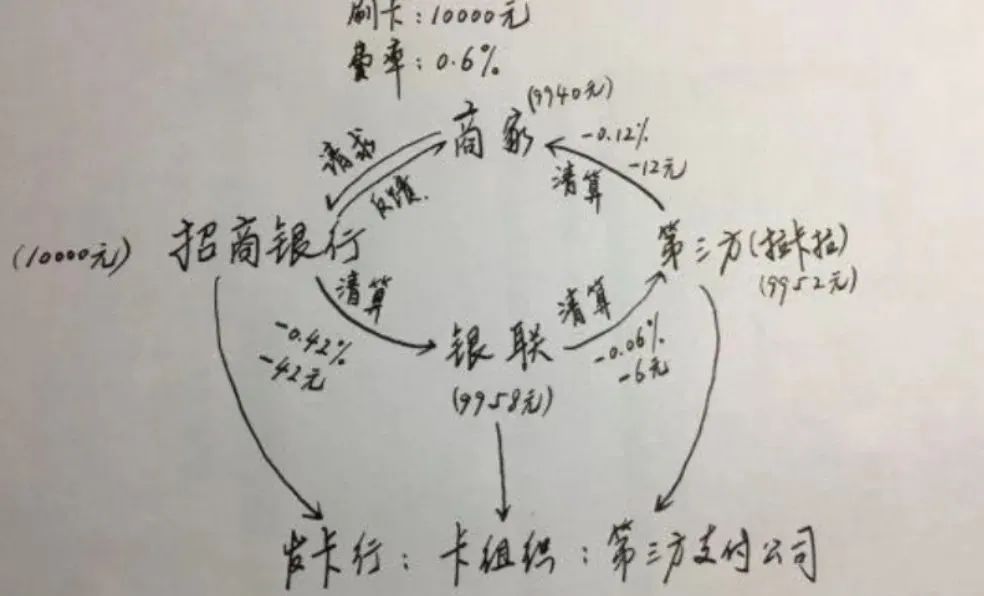 刷卡：10000元
费率：0.6%
商家
(9940元)
-0.12%
-12元
请求
反馈.
清算
(10000元)
招商银行
第三方(拉卡拉)
(9952元)
清算
清算
-0.42%
-42元
银联
(9958元)
-0.06%
-6元
发卡行：卡组织：第三方支付公司